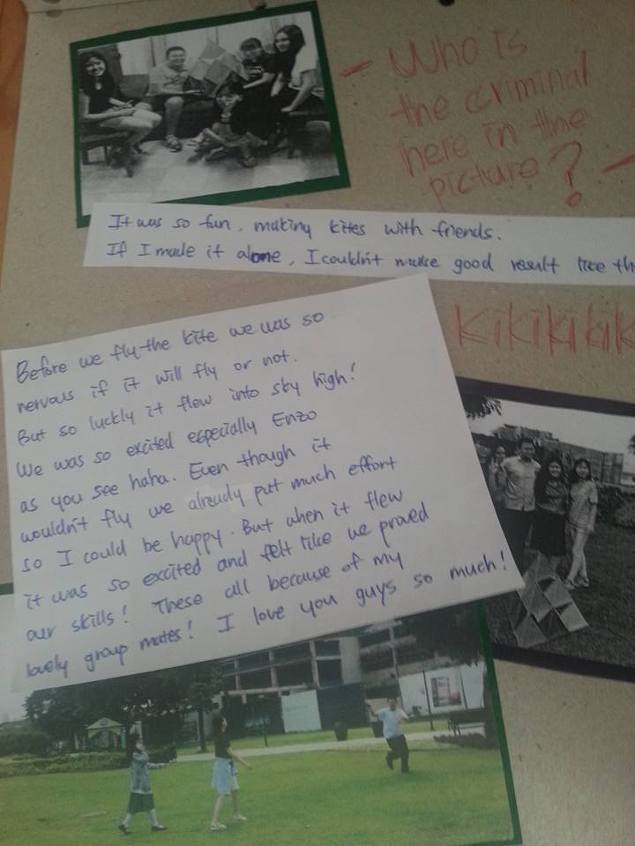 Who is
the criminal
here in the
picture?
It was so fun, making kites with friends.
If I made it alone, I couldn't make good result like th
Before we fly the kite we was so
nervous if it will fly or not.
But so luckly it flew into sky high!
We was so excited especially Enzo
as you see haha. Even though it
wouldn't fly we already put much effort
so I could be happy. But when it flew
it was so excited and felt like we proved
our skills! These all because of my
lovely group mates! I love you guys so much!
kikikikik